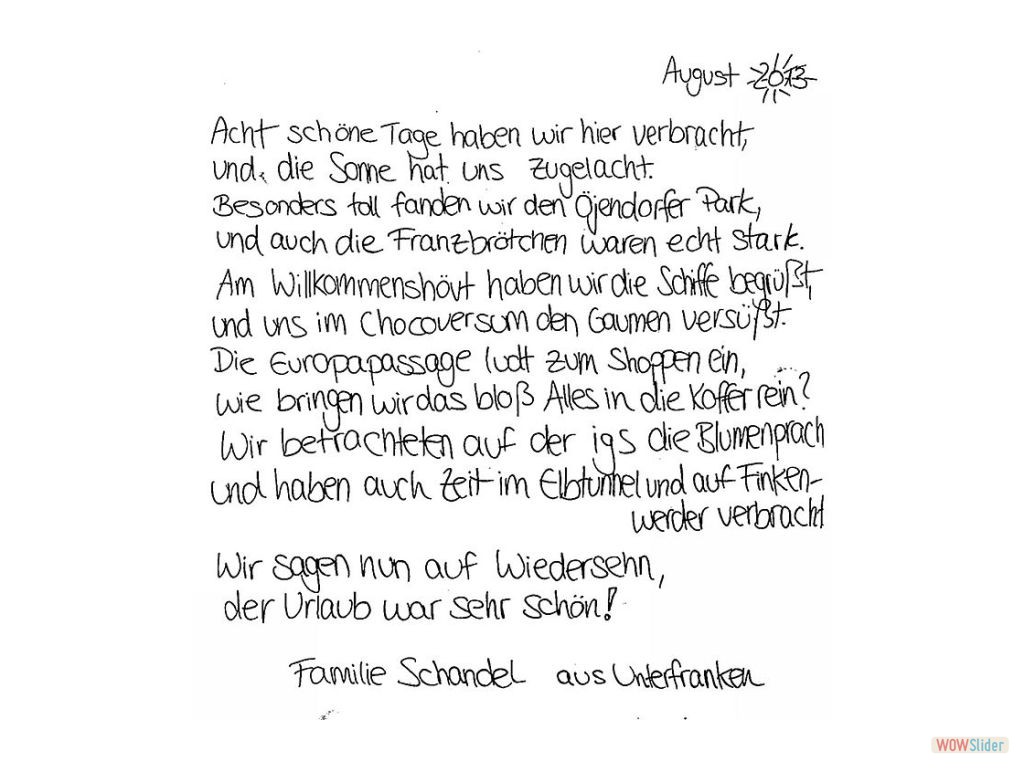 August 2013
Acht schöne Tage haben wir hier verbracht,
und die Sonne hat uns zugelacht.
Besonders toll fanden wir den Öjendorfer Park,
und auch die Franzbrötchen waren echt stark.
Am Willkommenshövt haben wir die Schiffe begrüßt,
und uns im Chocoversum den Gaumen versüßt.
Die Europapassage ludt zum Shoppen ein,
wie bringen wir das bloß Alles in die Koffer rein?
Wir betrachteten auf der igs die Blumenprach
und haben auch Zeit im Elbtunnel und auf Finken-
werder verbracht
Wir sagen nun auf Wiedersehn,
der Urlaub war sehr schön!
Familie Schandel aus Unterfranken
WOWSlider